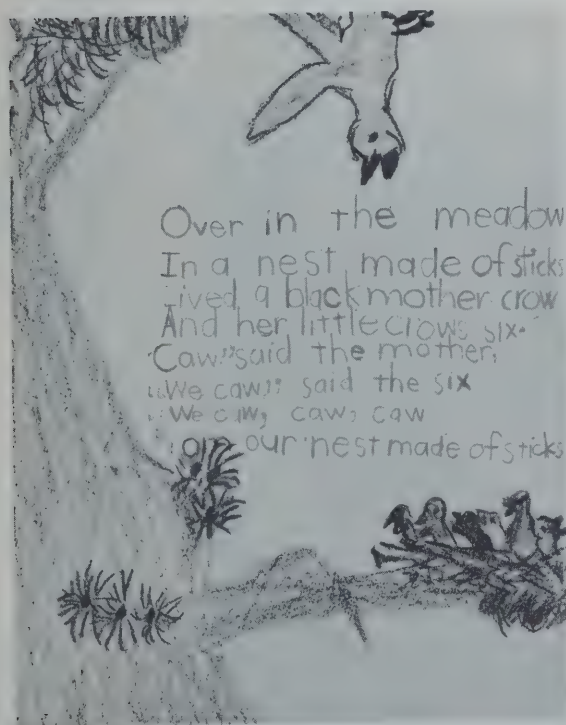 Over in the meadow
In a nest made of sticks
Lived a black mother crow
And her little crows six.
"Caw" said the mother,
"We caw," said the six
"We caw, caw, caw
our nest made of sticks